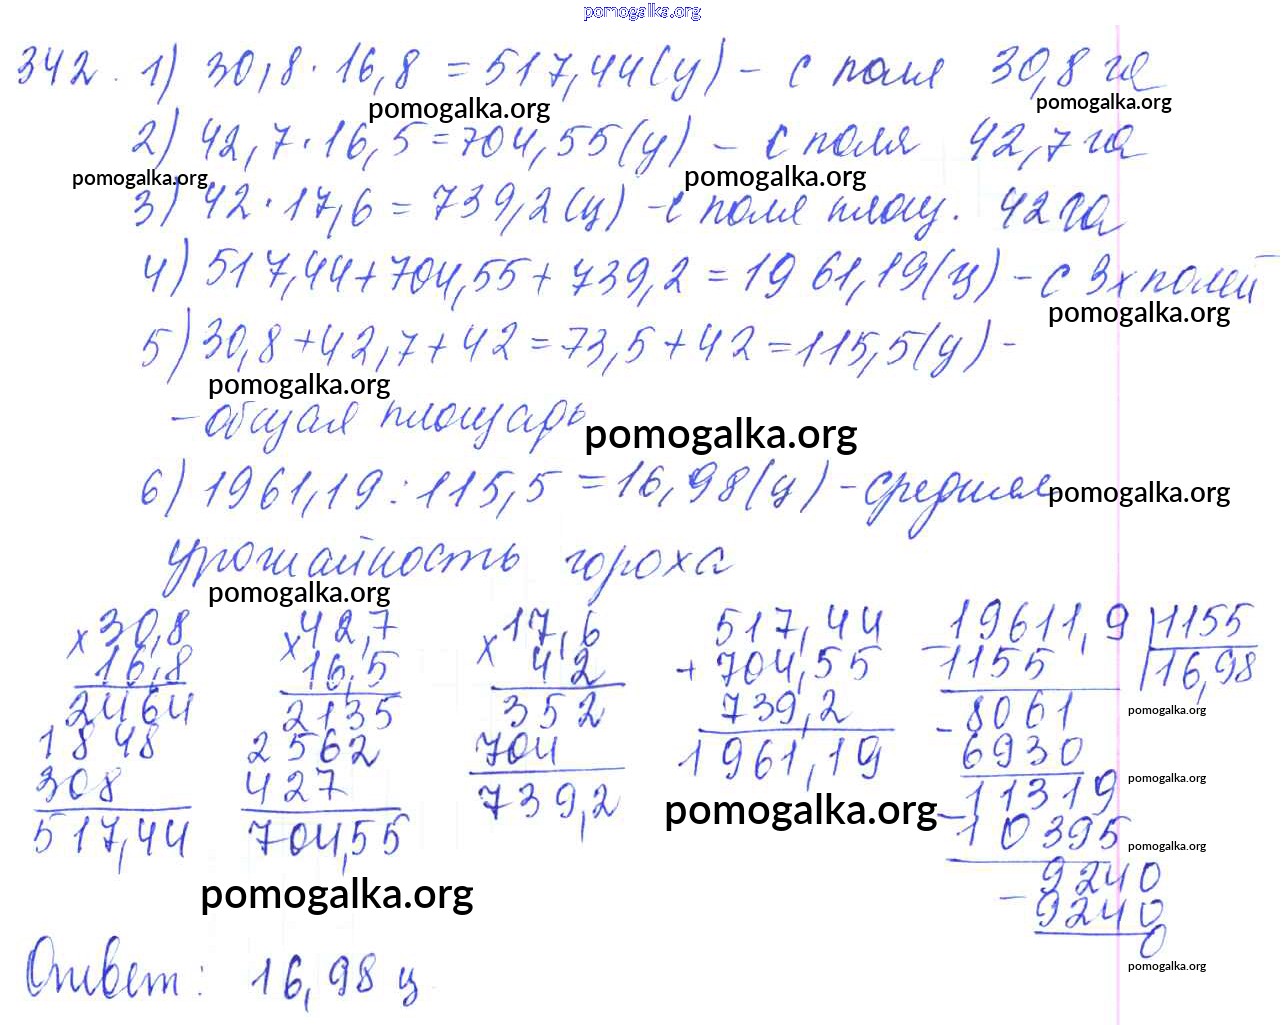 pomogalka.org
342. 1) 30,8 · 16,8 = 517,44 (ц) - с поля 30,8 га
pomogalka.org pomogalka.org
2) 42,7 · 16,5 = 704,55 (ц) - с поля 42,7 га
pomogalka.org pomogalka.org
3) 42 · 17,6 = 739,2 (ц) - с поля площ. 42 га
4) 517,44 + 704,55 + 739,2 = 1961,19 (ц) - с 3х полей
pomogalka.org
5) 30,8 + 42,7 + 42 = 73,5 + 42 = 115,5 (ц) -
pomogalka.org
- общая площадь
pomogalka.org
6) 1961,19 : 115,5 = 16,98 (ц) - средняя
pomogalka.org
урожайность гороха
pomogalka.org
× 30,8
16,8
2464
1848
308
517,44
× 42,7
16,5
2135
2562
427
704,55
× 17,6
42
352
704
739,2
517,44
+ 704,55
739,2
1961,19
- 19611,9 | 1155
1155 | 16,98
pomogalka.org
- 8061
6930
pomogalka.org
- 11319
10395
pomogalka.org
- 9240
9240
0
pomogalka.org
pomogalka.org
pomogalka.org
Ответ: 16,98 ц